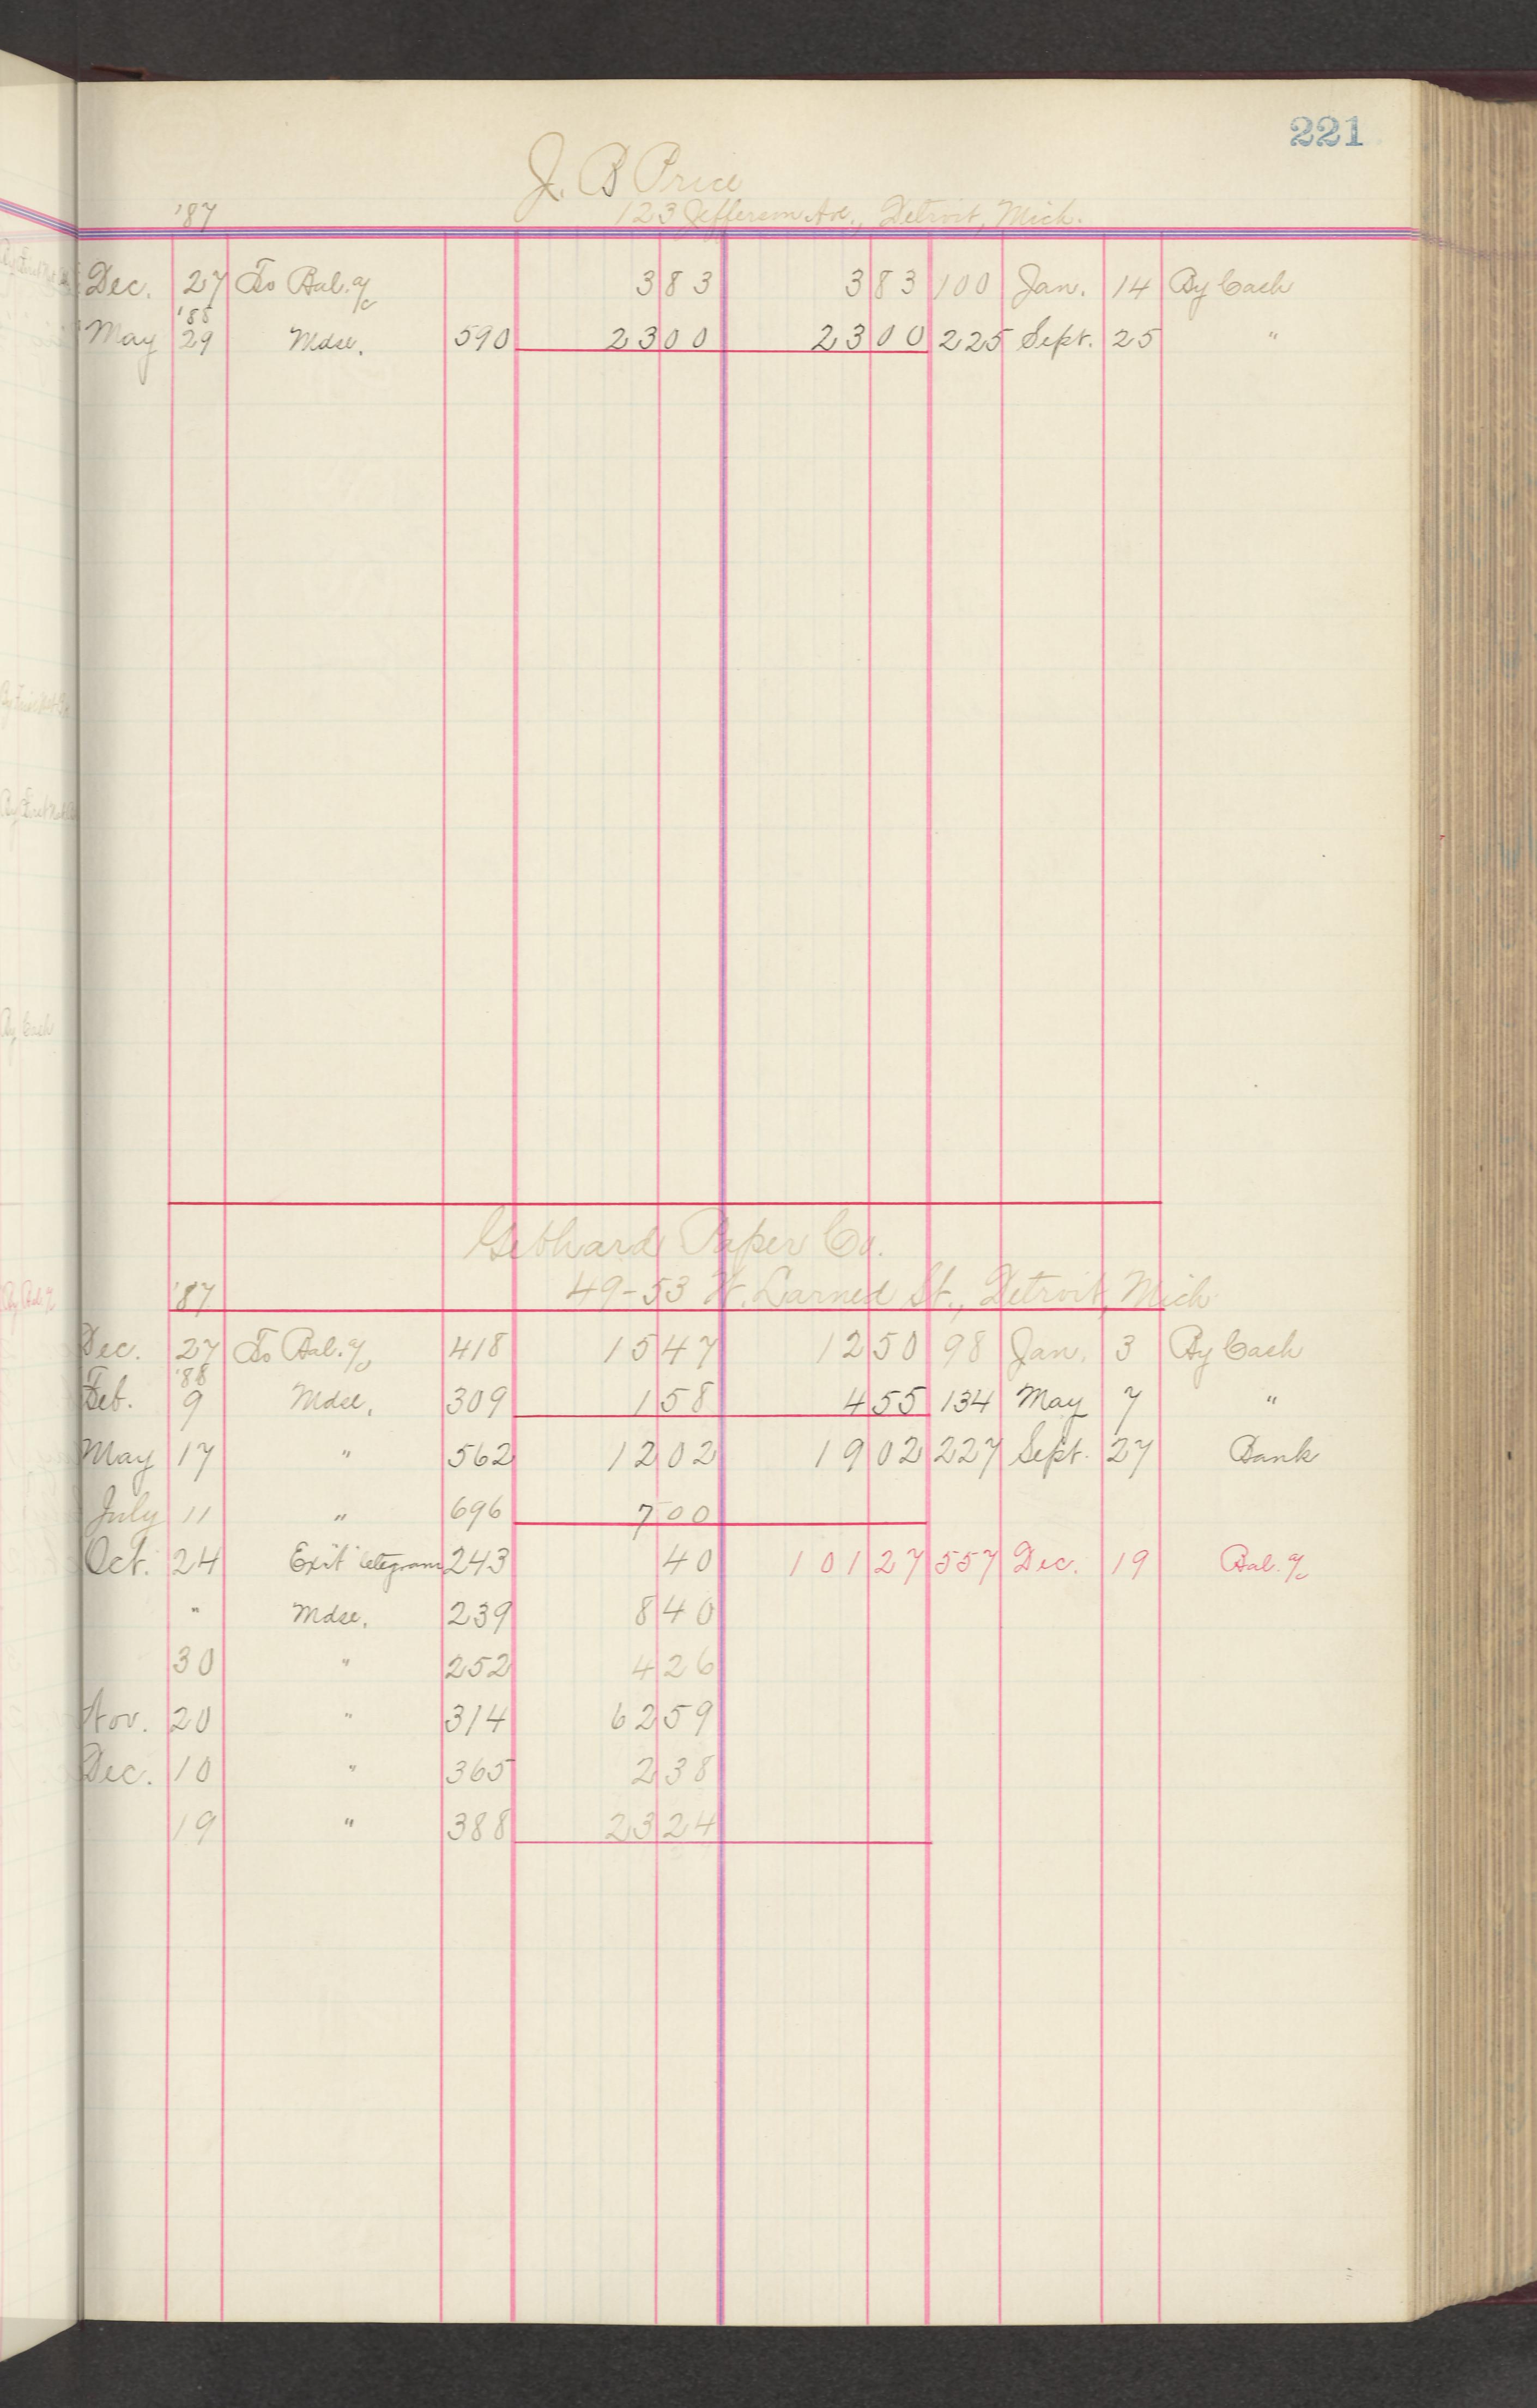 221
J. B Price
'87 123 Jefferson Ave., Detroit, Mich.
Dec. 27 To Bal. a/c 383 383 100 Jan. 14 By Cash
'88
May 29 Mdse. 590 2300 2300 225 Sept. 25 "
Gebhard Paper Co.
'87 49-53 W. Larned St., Detroit, Mich
Dec. 27 To Bal. a/c 418 1547 1250 98 Jan. 3 By Cash
'88
Feb. 9 Mdse. 309 158 455 134 May 7 "
May 17 " 562 1202 1902 227 Sept. 27 Bank
July 11 " 696 700
Oct. 24 Exp't telegram 243 40 10127 557 Dec. 19 Bal. a/c
" Mdse. 239 840
30 " 252 426
Nov. 20 " 314 6259
Dec. 10 " 365 238
19 " 388 2324